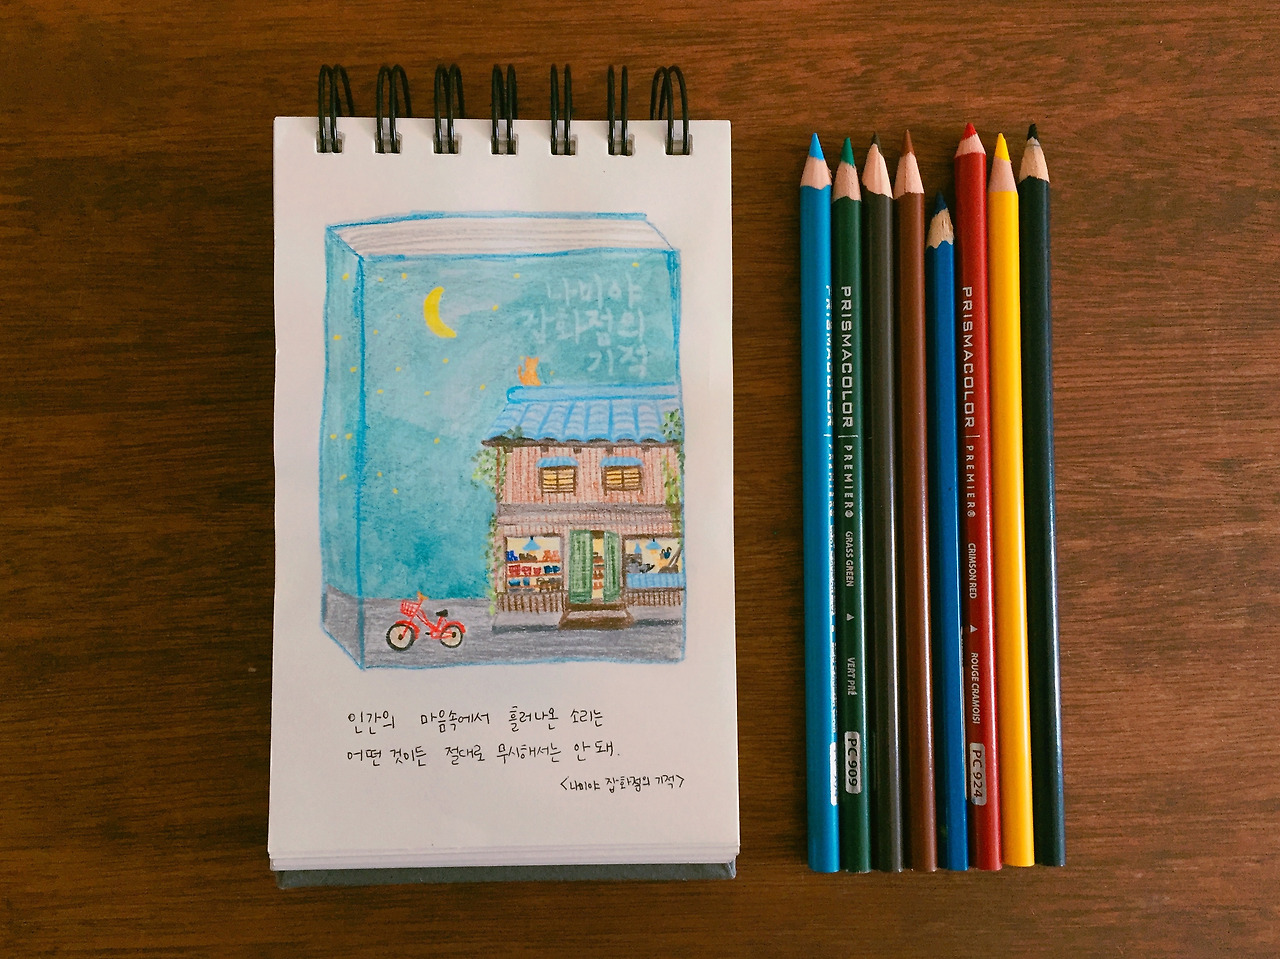 나미야
잡화점의
기적
인간의 마음속에서 흘러나온 소리는
어떤 것이든 절대로 무시해서는 안 돼.
<나미야 잡화점의 기적>
PRISMACOLOR PREMIER® GRASS GREEN VERT PRÉ PC 909
PRISMACOLOR PREMIER® CRIMSON RED ROUGE CRAMOISI PC 924